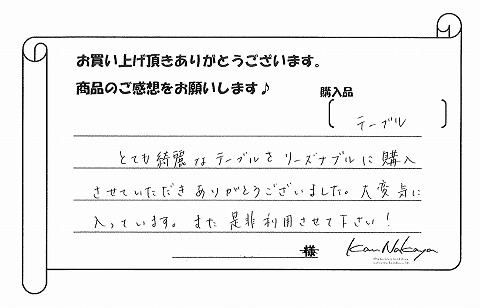 お買い上げ頂きありがとうございます。
商品のご感想をお願いします♪
購入品
テーブル
とても綺麗なテーブルをリーズナブルに購入
させていただきありがとうございました。大変気に
入っています。また是非利用させて下さい！
様
Kan Nakaya